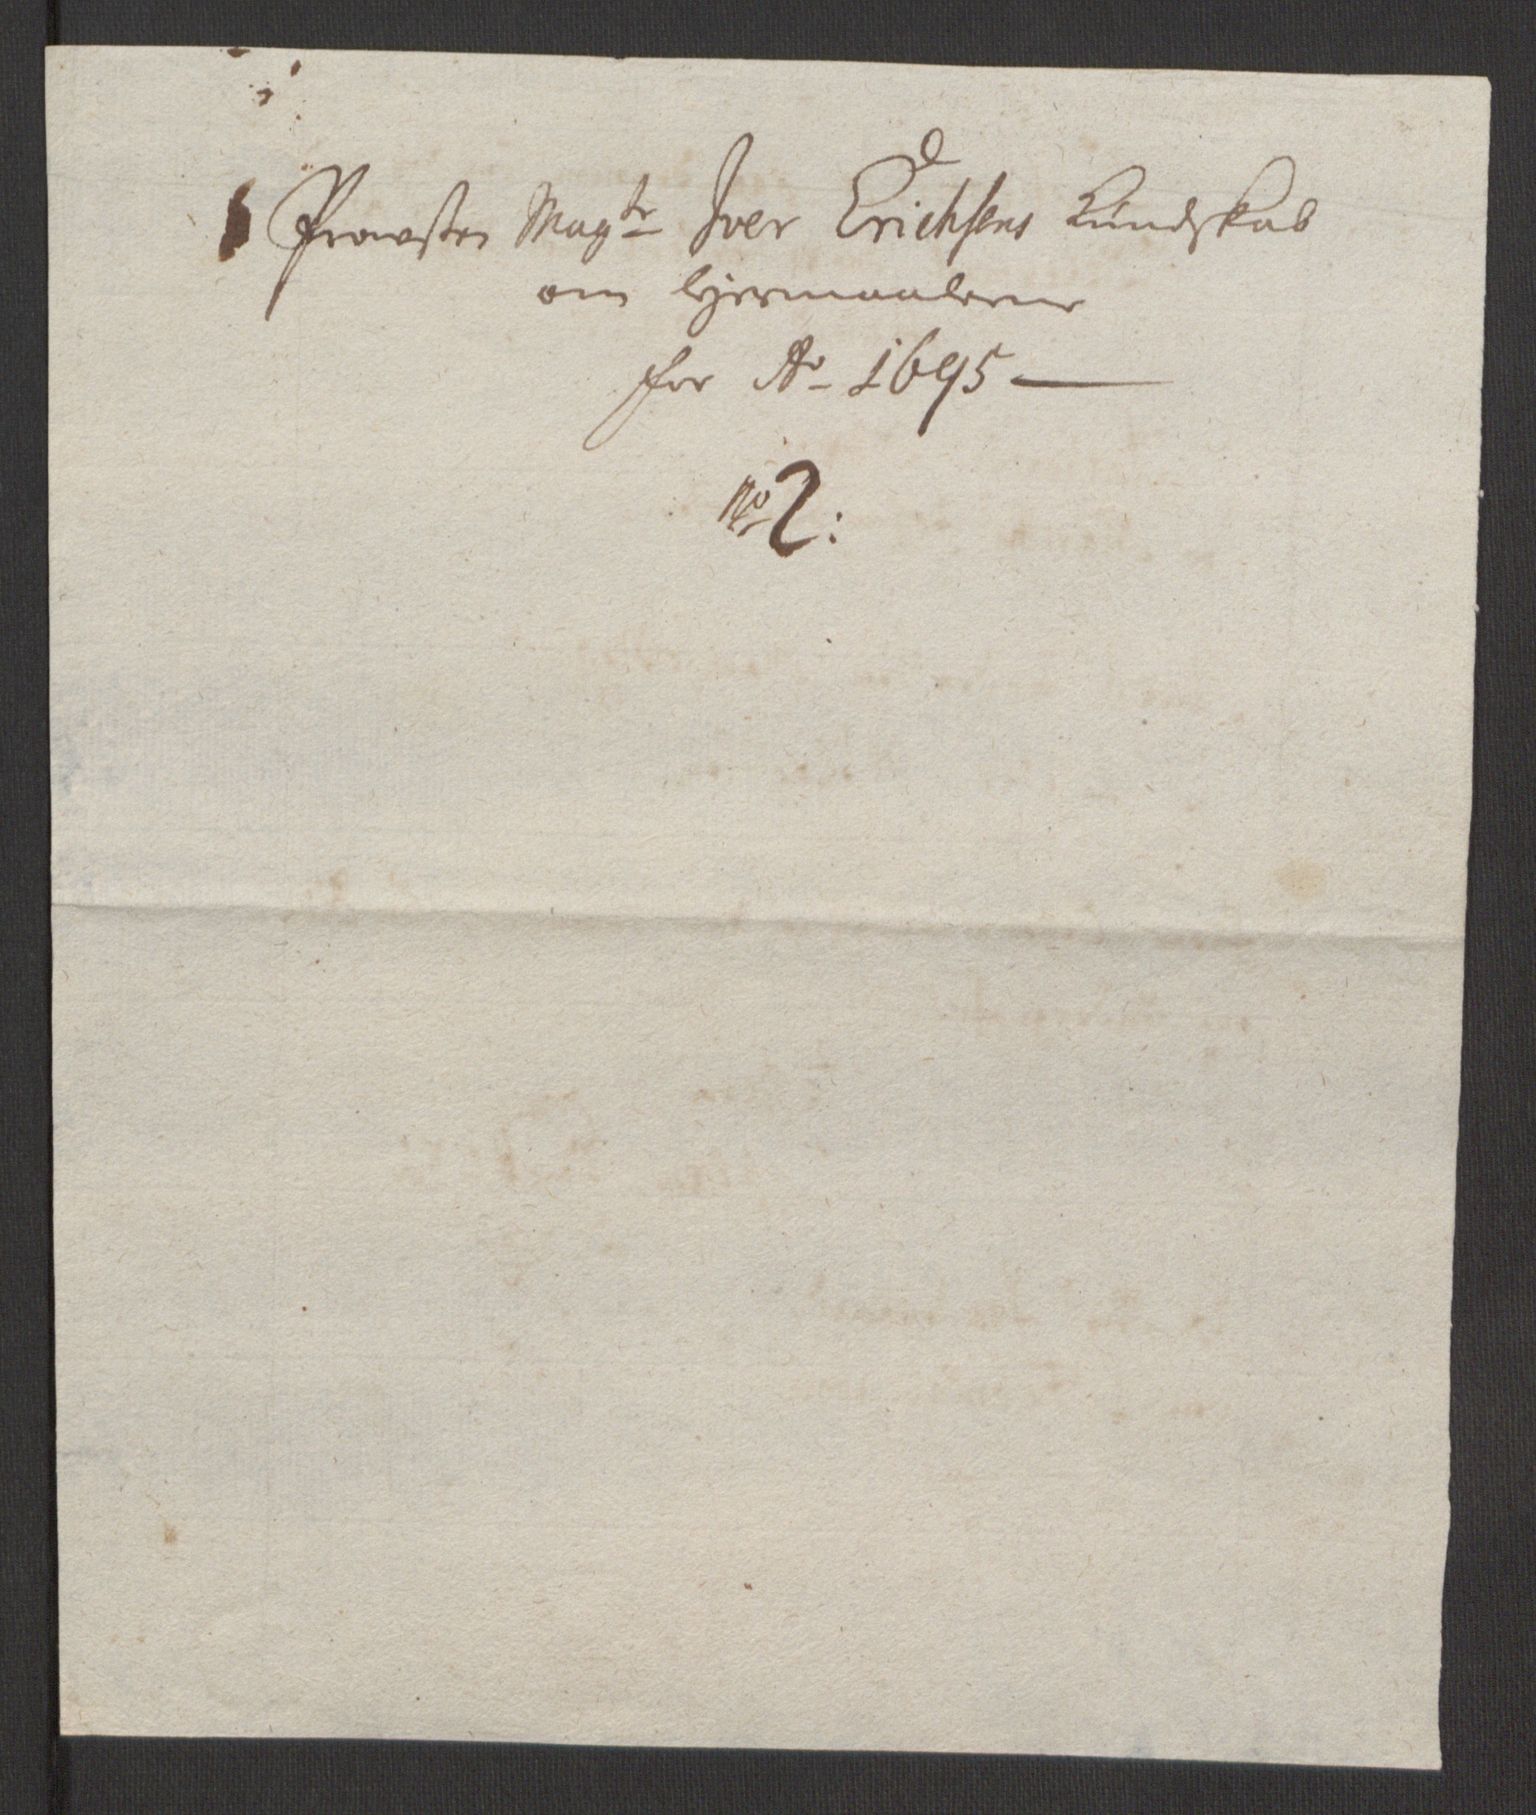 Prowsten Mag^tr Iver Erichsens Kundskab
om lejermaalerne
for A^o 1695
N^o 2: